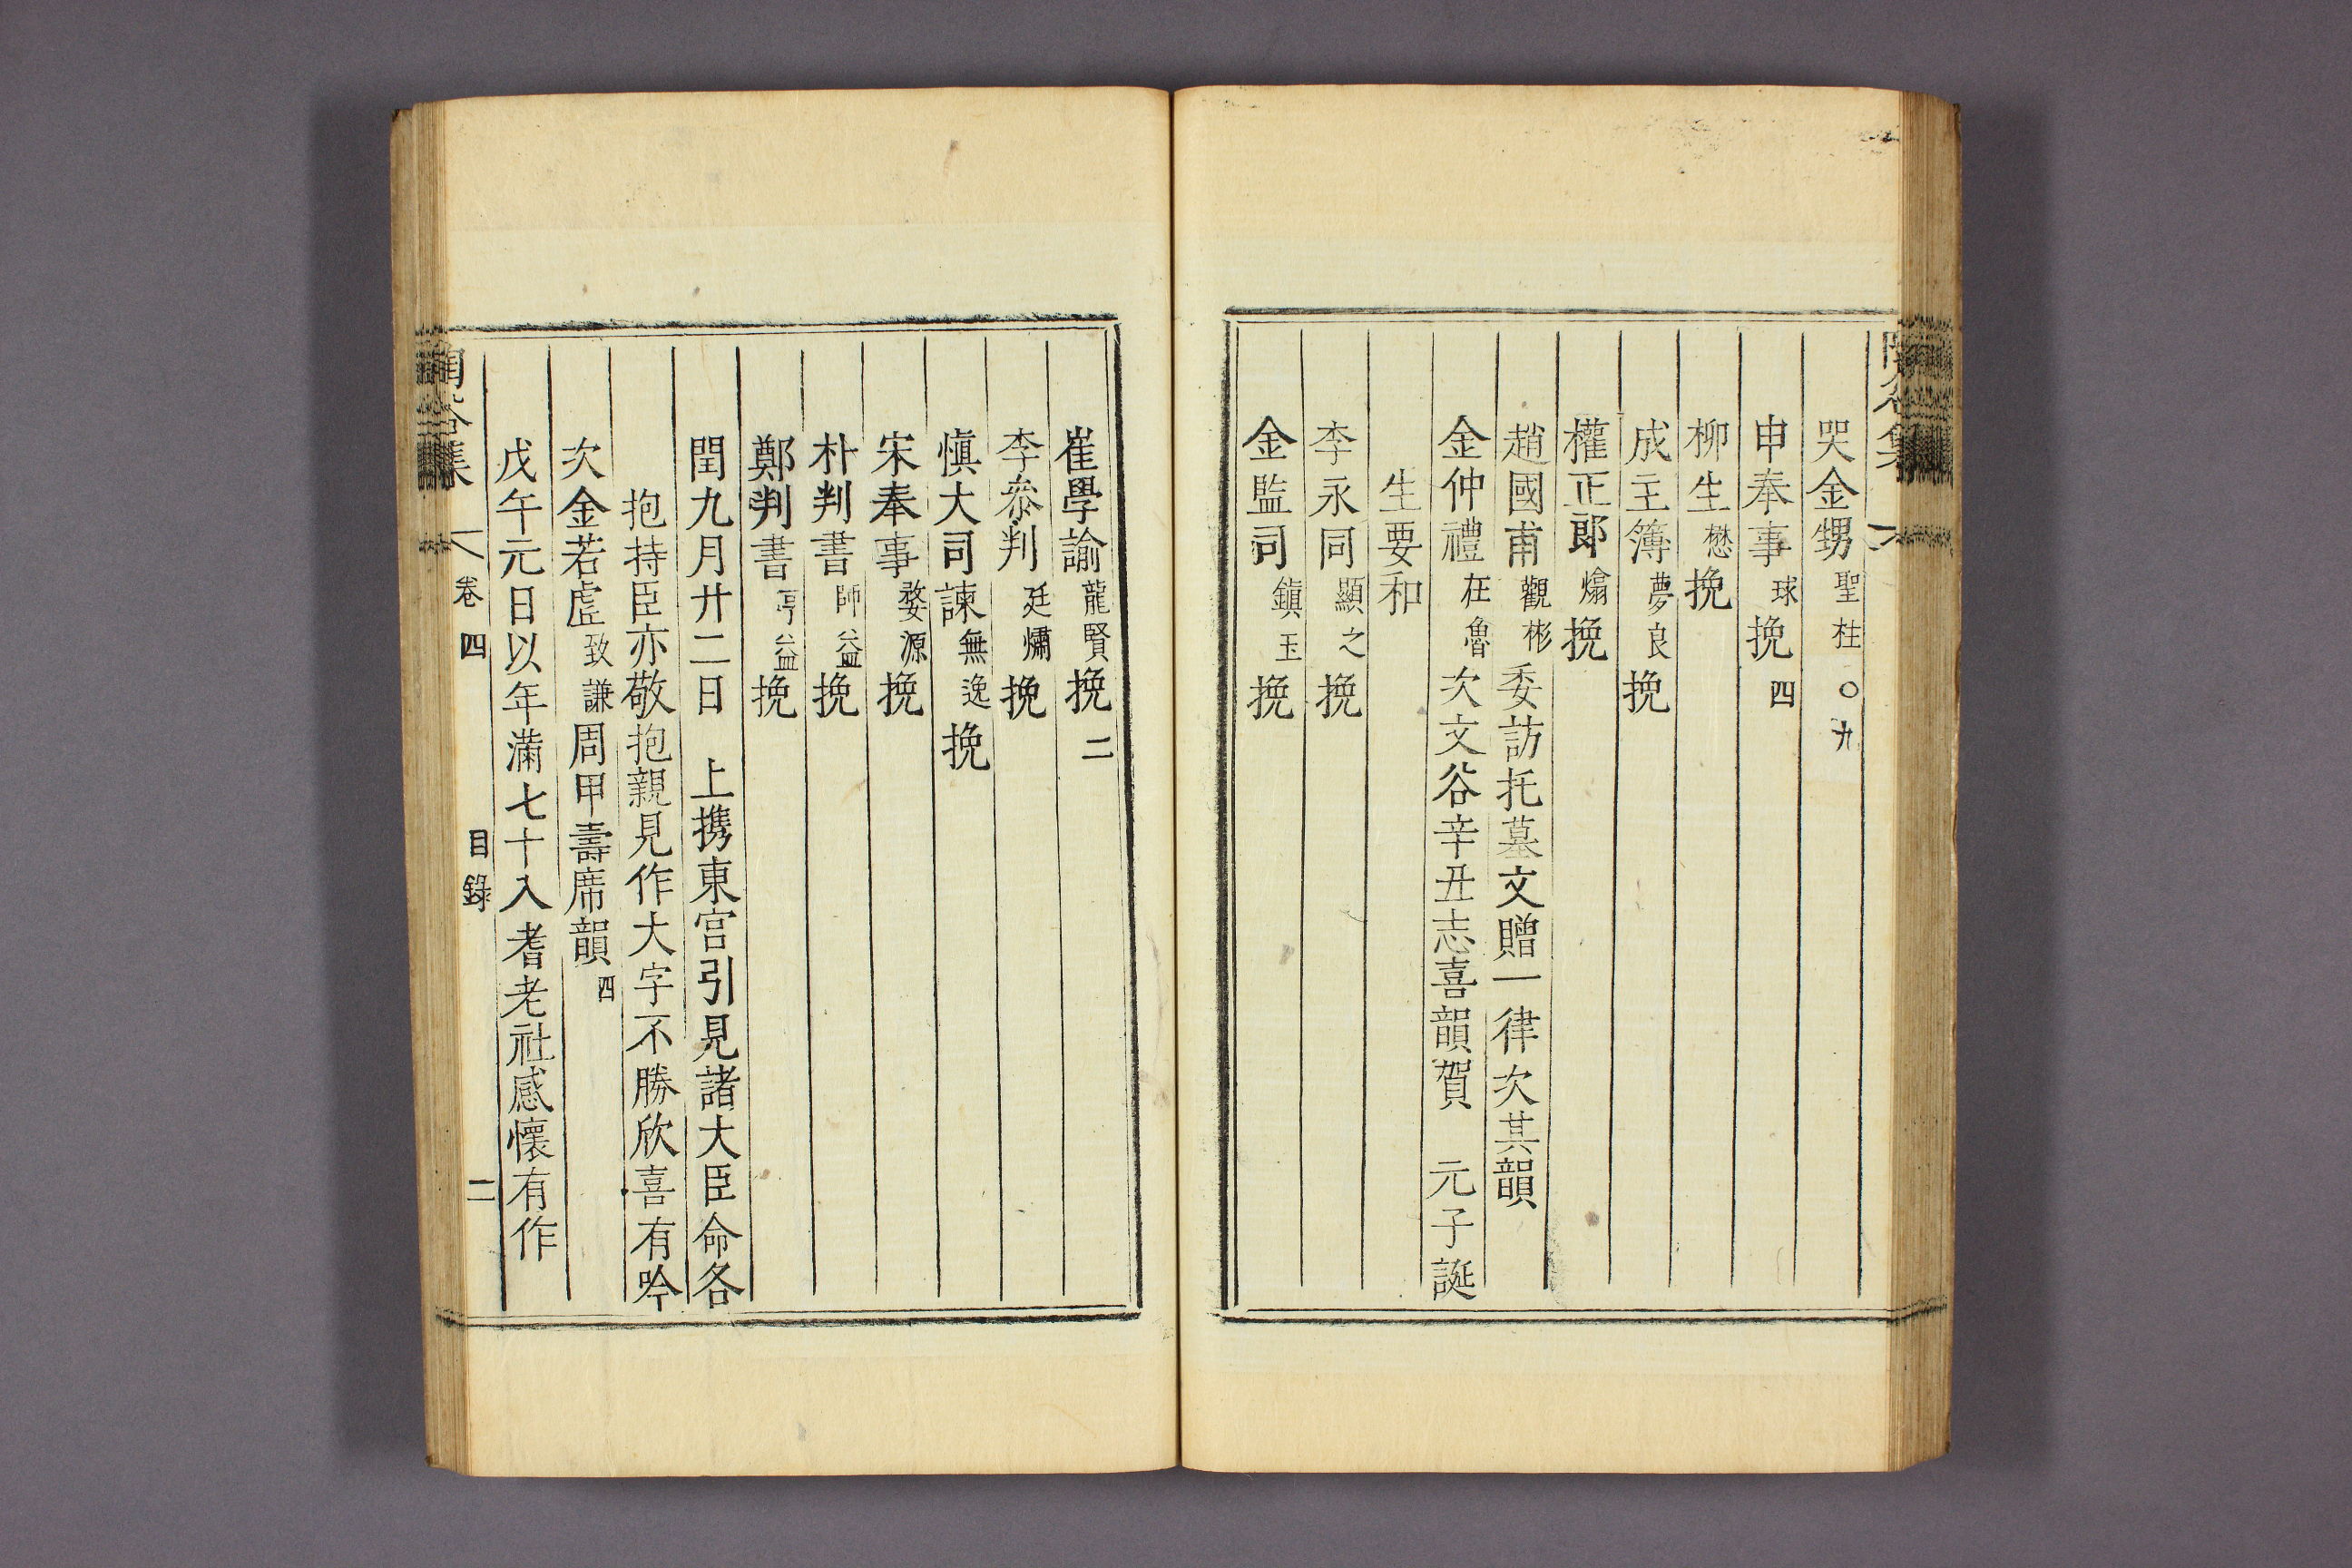 哭金甥聖柱〇九
申奉事球挽四
柳生懋挽
成主簿夢良挽
權正郎熻挽
趙國甫觀彬委訪托墓文贈一律次其韻
金仲禮在魯次文谷辛丑志喜韻賀 元子誕
生要和
李永同顯之挽
金監司鎭玉挽
崔學諭龍賢挽二
李叅判廷熽挽
愼大司諫無逸挽
宋奉事婺源挽
朴判書師益挽
鄭判書亨益挽
閏九月廿二日 上携東宮引見諸大臣命各
抱持臣亦敬抱親見作大字不勝欣喜有吟
次金若虛致謙周甲壽席韻四
戊午元日以年滿七十入耆老社感懷有作
陶谷集 卷四 目錄 二